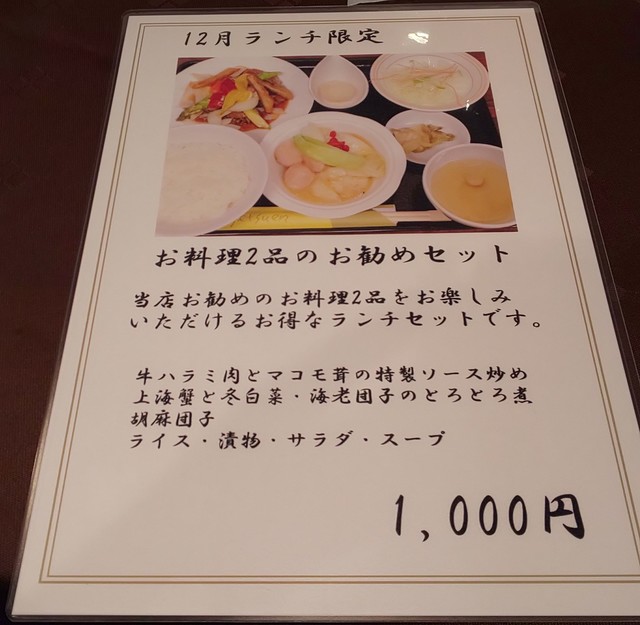 12月ランチ限定
お料理2品のお勧めセット
当店お勧めのお料理2品をお楽しみ
いただけるお得なランチセットです。
牛ハラミ肉とマコモ茸の特製ソース炒め
上海蟹と冬白菜・海老団子のとろとろ煮
胡麻団子
ライス・漬物・サラダ・スープ
1,000円